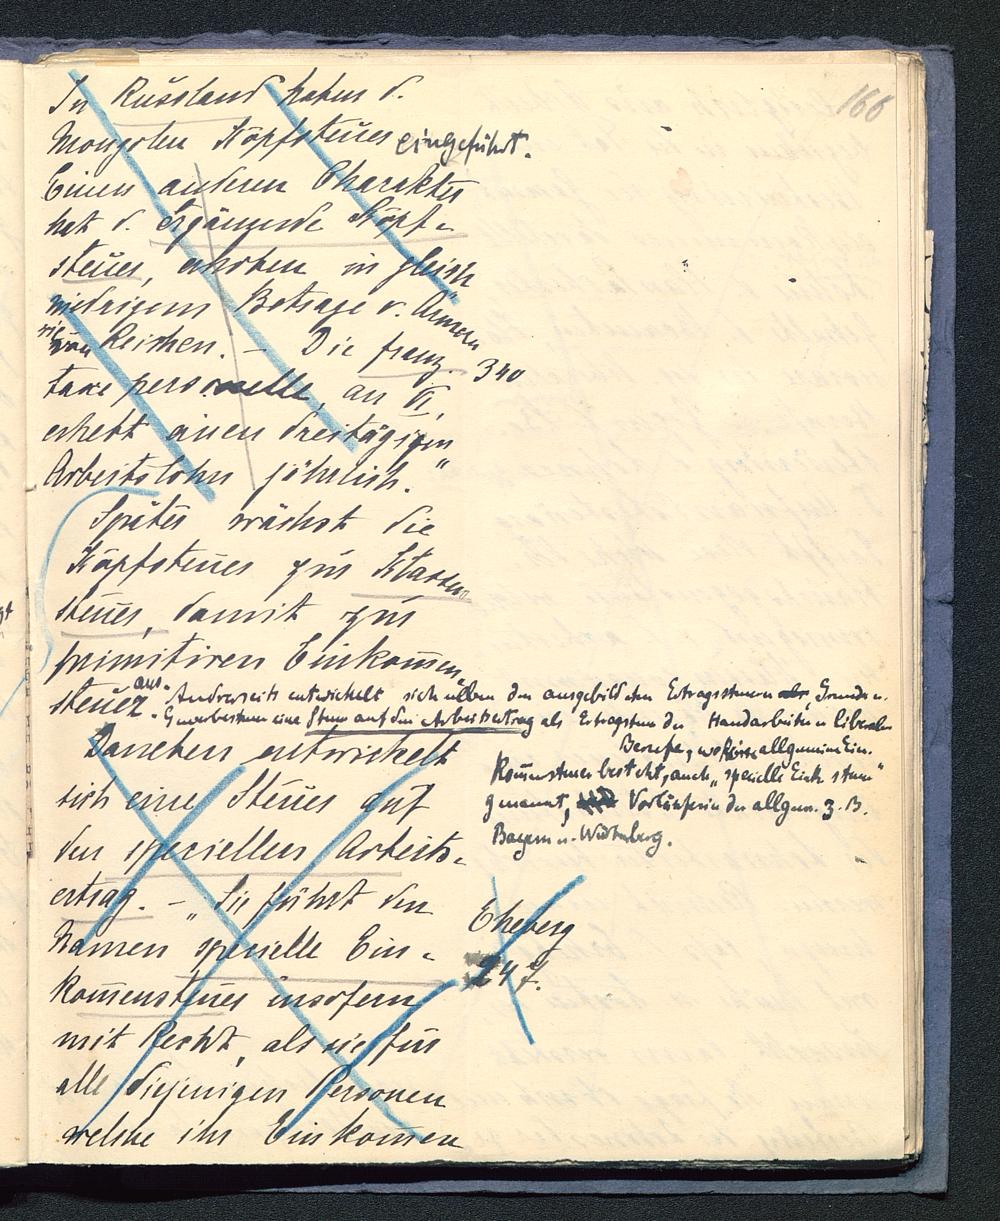 166
In Russland haben d.
Mongolen Kopfsteuer eingeführt.
Einen anderen Charakter
hat d. Ergänzende Kopf-
steuer, erhoben in gleich
niedrigem Betrage v. Armen
wie von Reichen. – Die franz. 340
taxe personelle, an VI,
erhebt einen dreitägigen
Arbeitslohn jährlich."
Später wächst die
Kopfsteuer zur Klassen-
steuer, damit zur
primitiven Einkom̅en-
steuer aus. Andrerseits entwickelt sich neben den ausgebildeten Ertragssteuern Grund- u.
Gewerbesteuer eine Steuer auf den Arbeitsertrag als Ertragsteuer der Handarbeiter u. liberalen
Berufe, wo keine allgemeine Ein-
kom̅ensteuer besteht, auch „spezielle Eink. steuer"
genannt, Vorläuferin der allgem. z. B.
Bayern u. Württemberg.
Daneben entwickelt
sich eine Steuer auf
den speciellen Arbeits-
ertrag. – „Sie führt den
Namen specielle Ein-
kom̅ensteuer insofern
mit Recht, als sie für
alle diejenigen Personen
welche ihr Einkom̅en
Eheberg
247.